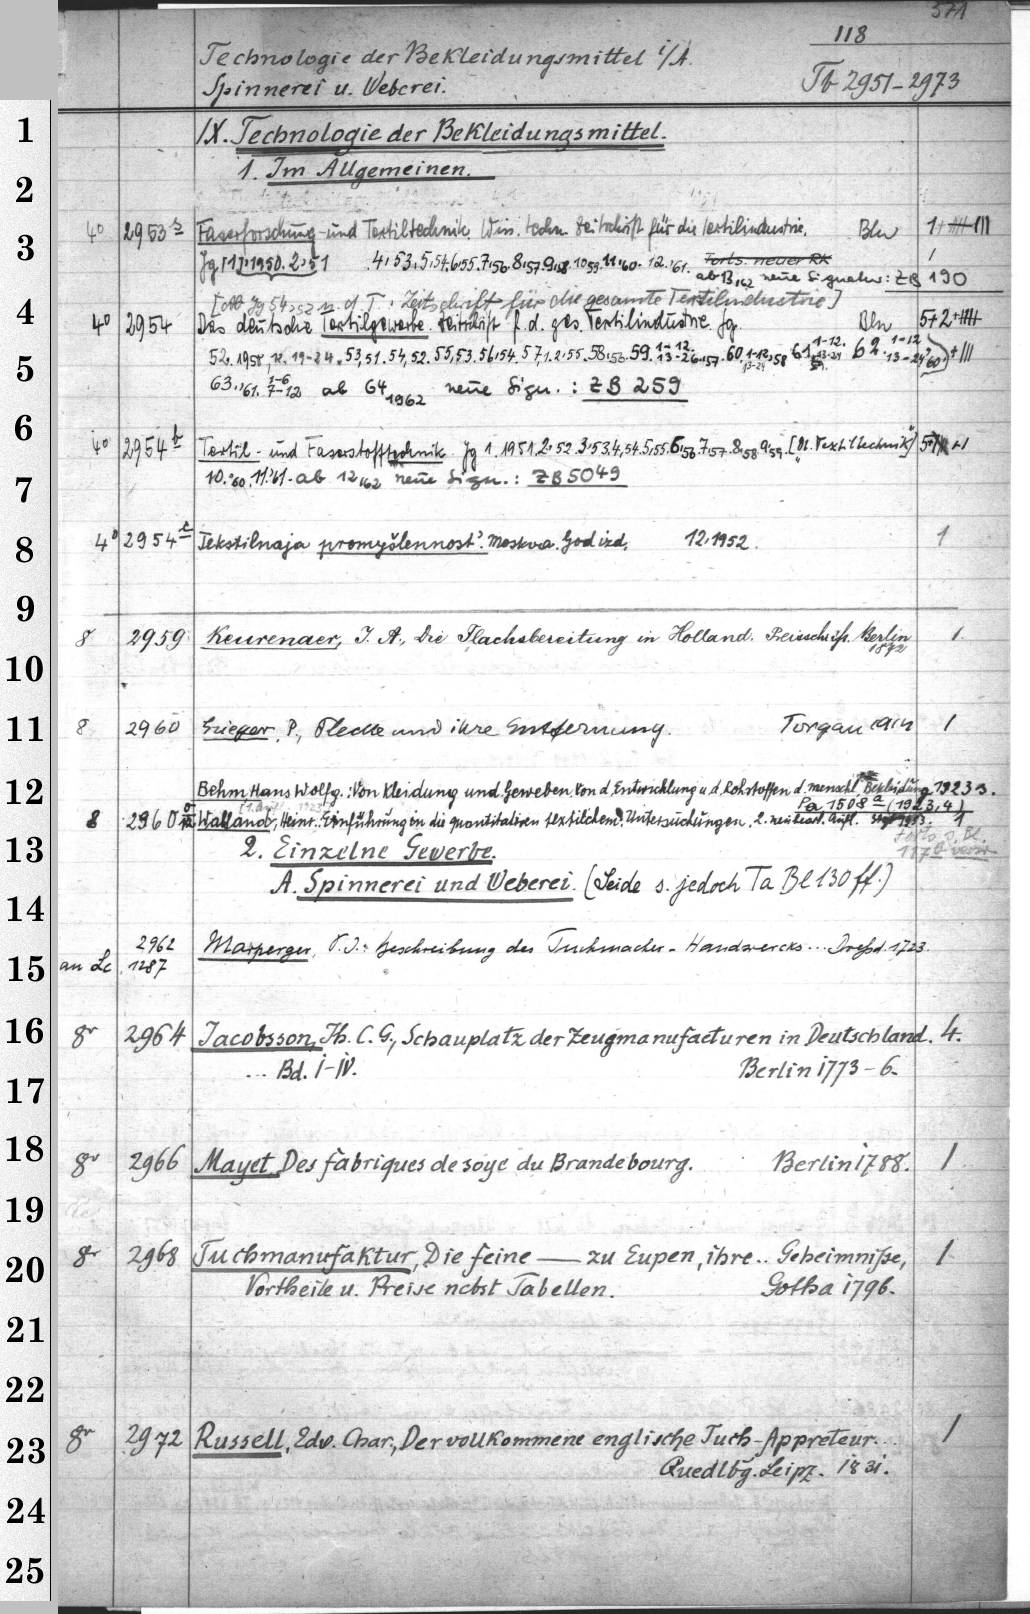 571
118
Technologie der Bekleidungsmittel i/A.
Spinnerei u. Weberei.
Tb 2951-2973
1
IX. Technologie der Bekleidungsmittel.
1. Im Allgemeinen.
2
4° 2953 a Faserforschung und Textiltechnik. Wiss. techn. Zeitschrift für die Textilindustrie. Bln 1
3
Jg [1] 1950. 2,51 4,53, 5,54. 6,55. 7,56. 8,57. 9,58. 10,59. 11,60. 12,61. Forts. neuer RK
ab 13,62 neue Signatur: ZB 190
[Ab Jg 5 u. d. T.: Zeitschrift für die gesamte Textilindustrie]
4
4° 2954 Das deutsche Textilgewerbe. Zeitschrift f. d. ges. Textilindustrie. Jg. Bln 5+2
5
63. '61. 1-6 7-12 ab 64 1962 neue Sign.: ZB 259
6
4° 2954 b Textil- und Faserstofftechnik. Jg 1. 1951. 2,52. 3,53. 4,54. 5,55. 6,56. 7,57. 8,58. 9,59. [Dt. Textiltechnik]
7
10.'60. 11.'61. ab 12,62 neue Sign.: ZB 5049
8
4° 2954 c Tekstilnaja promyšlennost'. Moskva. God izd. 12,1952. 1
9
8 2959 Keurenaer, J. A., Die Flachsbereitung in Holland. Preisschrift. Berlin 1
1872
10
11
8 2960 Grieger, P., Flecke und ihre Entfernung. Torgau 1914 1
12
Behm Hans Wolfg.: Von Kleidung und Geweben. Von d. Entwicklung u. d. Rohstoffen d. menschl. Bekleidung 1923
Pa 1508 a (1923,4)
8 2960 Walland, Heinr.: Einführung in die quantitativen textilchem. Untersuchungen. 2. neubearb. Aufl. 1953. 1
Forts. s. Bl.
13
2. Einzelne Gewerbe.
A. Spinnerei und Weberei. (Seide s. jedoch Ta Bl 130 ff.)
14
2962 Marperger, P. J.: Beschreibung des Tuchmacher-Handwercks ... Dreßd. 1723.
15
an Lc 1287
16
gr 2964 Jacobsson, Jh. C. G., Schauplatz der Zeugmanufacturen in Deutschland. 4.
... Bd. I-IV. Berlin 1773-6.
17
18
gr 2966 Mayet, Des fabriques de soye du Brandebourg. Berlin 1788. 1
19
20
gr 2968 Tuchmanufaktur, Die feine — zu Eupen, ihre .. Geheimniße, 1
Vortheile u. Preise nebst Tabellen. Gotha 1796.
21
22
23
gr 2972 Russell, Edv. Char., Der vollkommene englische Tuch-Appreteur... 1
Quedlbg. Leipz. 1831.
24
25